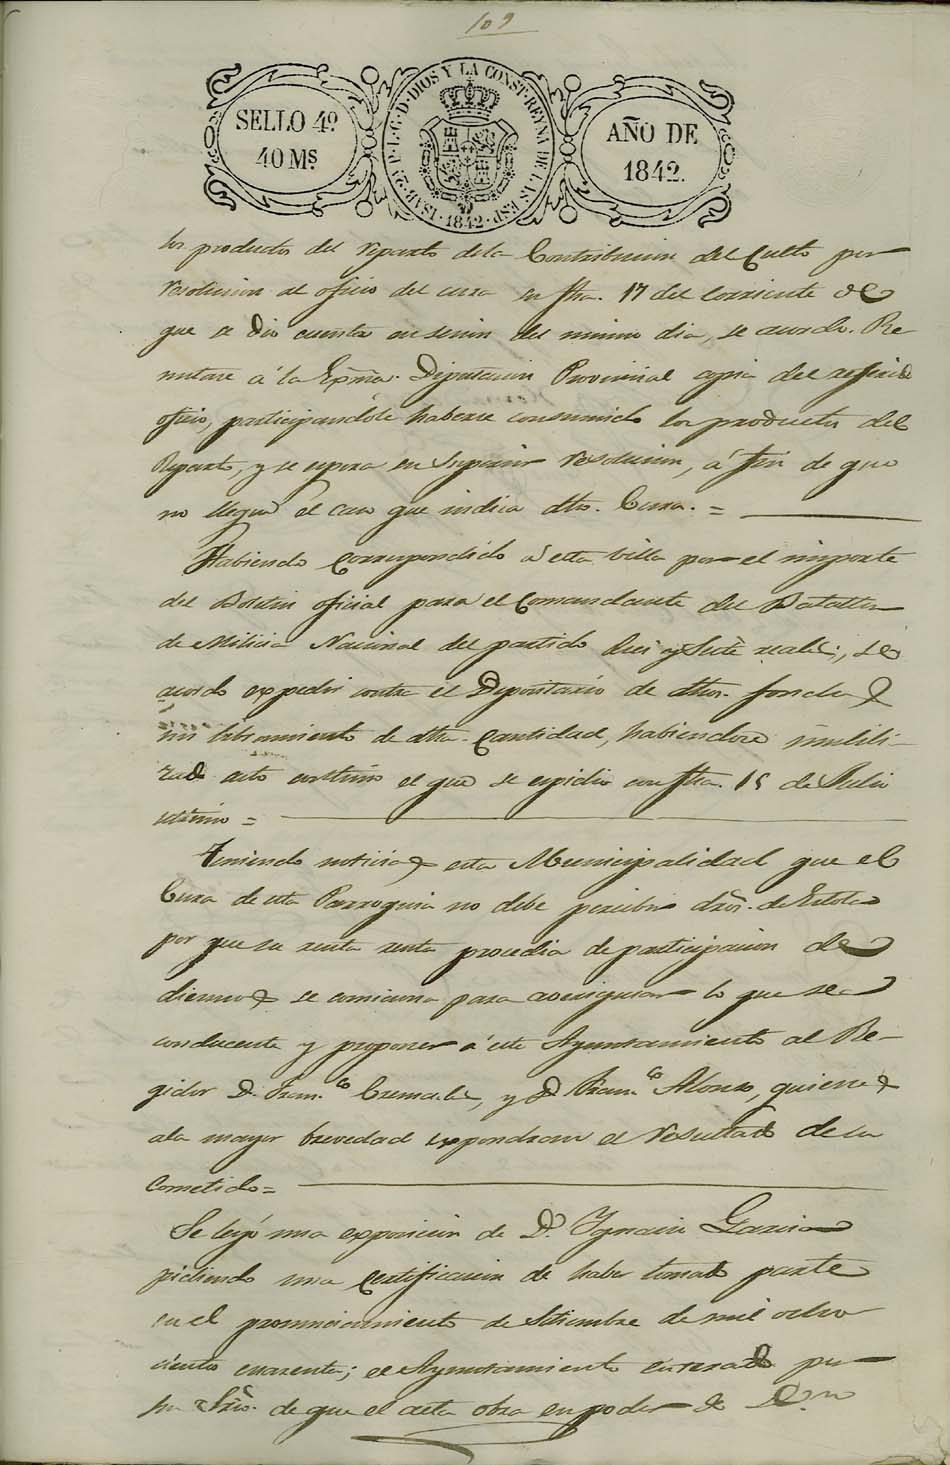 109
SELLO 4º
40 Ms
ISAB. 2ª P. L. G. D. DIOS Y LA CONST. REYNA DE LAS ESP.
1842
AÑO DE
1842.
los productos del reparto dela Contribucion del Culto por
resolucion al oficio del cura su fha. 17 del corriente de
que se dio cuenta en sesion del mismo dia, se acordo. Re-
mitase á la Exma. Diputacion Provincial copia del referido
oficio, participandole haberse consumido los productos del
Reparto, y se espera su Superior resolucion, á fin de que
no llegue el caso que indica dho. Cura. =
Habiendo correspondido a esta villa por el importe
del Boletin oficial para el Comandante del Batallon
de Milicia Nacional del partido diez y siete reales, se
acordo expedir contra el Depositario de dhos. fondos
un libramiento de dha. cantidad, habiendose inutili-
zado el que se expidio con fha. 15 de Julio
ultimo =
Teniendo noticias esta Municipalidad que el
Cura de esta Parroquia no debe percibir dros. de Estola
por que su renta renta procedia de participacion de
diezmos se comisiona para averiguar lo que sea
conducente y proponer á este Ayuntamiento al Re-
gidor D. Fran.co Cremades, y D. Fran.co Alonso, quienes
ala mayor brevedad expondran el resultado de su
Cometido =
Se leyó una exposicion de D. Ygnacio Garcia
pidiendo una certificacion de haber tomado parte
en el pronunciamiento de Setiembre de mil ocho
cientos cuarenta; el Ayuntamiento enterado por
su Srio. de que el acta obra en poder de D.n